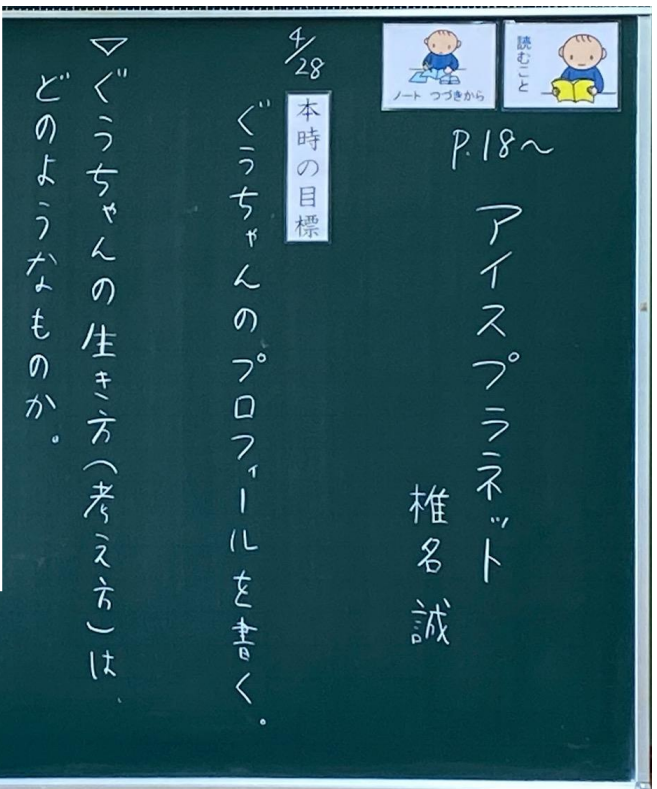 読むこと
ノート つづきから
P.18～
アイスプラネット
椎名 誠
4/28
本時の目標
ぐうちゃんのプロフィールを書く。
▽ぐうちゃんの生き方(考え方)は、
どのようなものか。